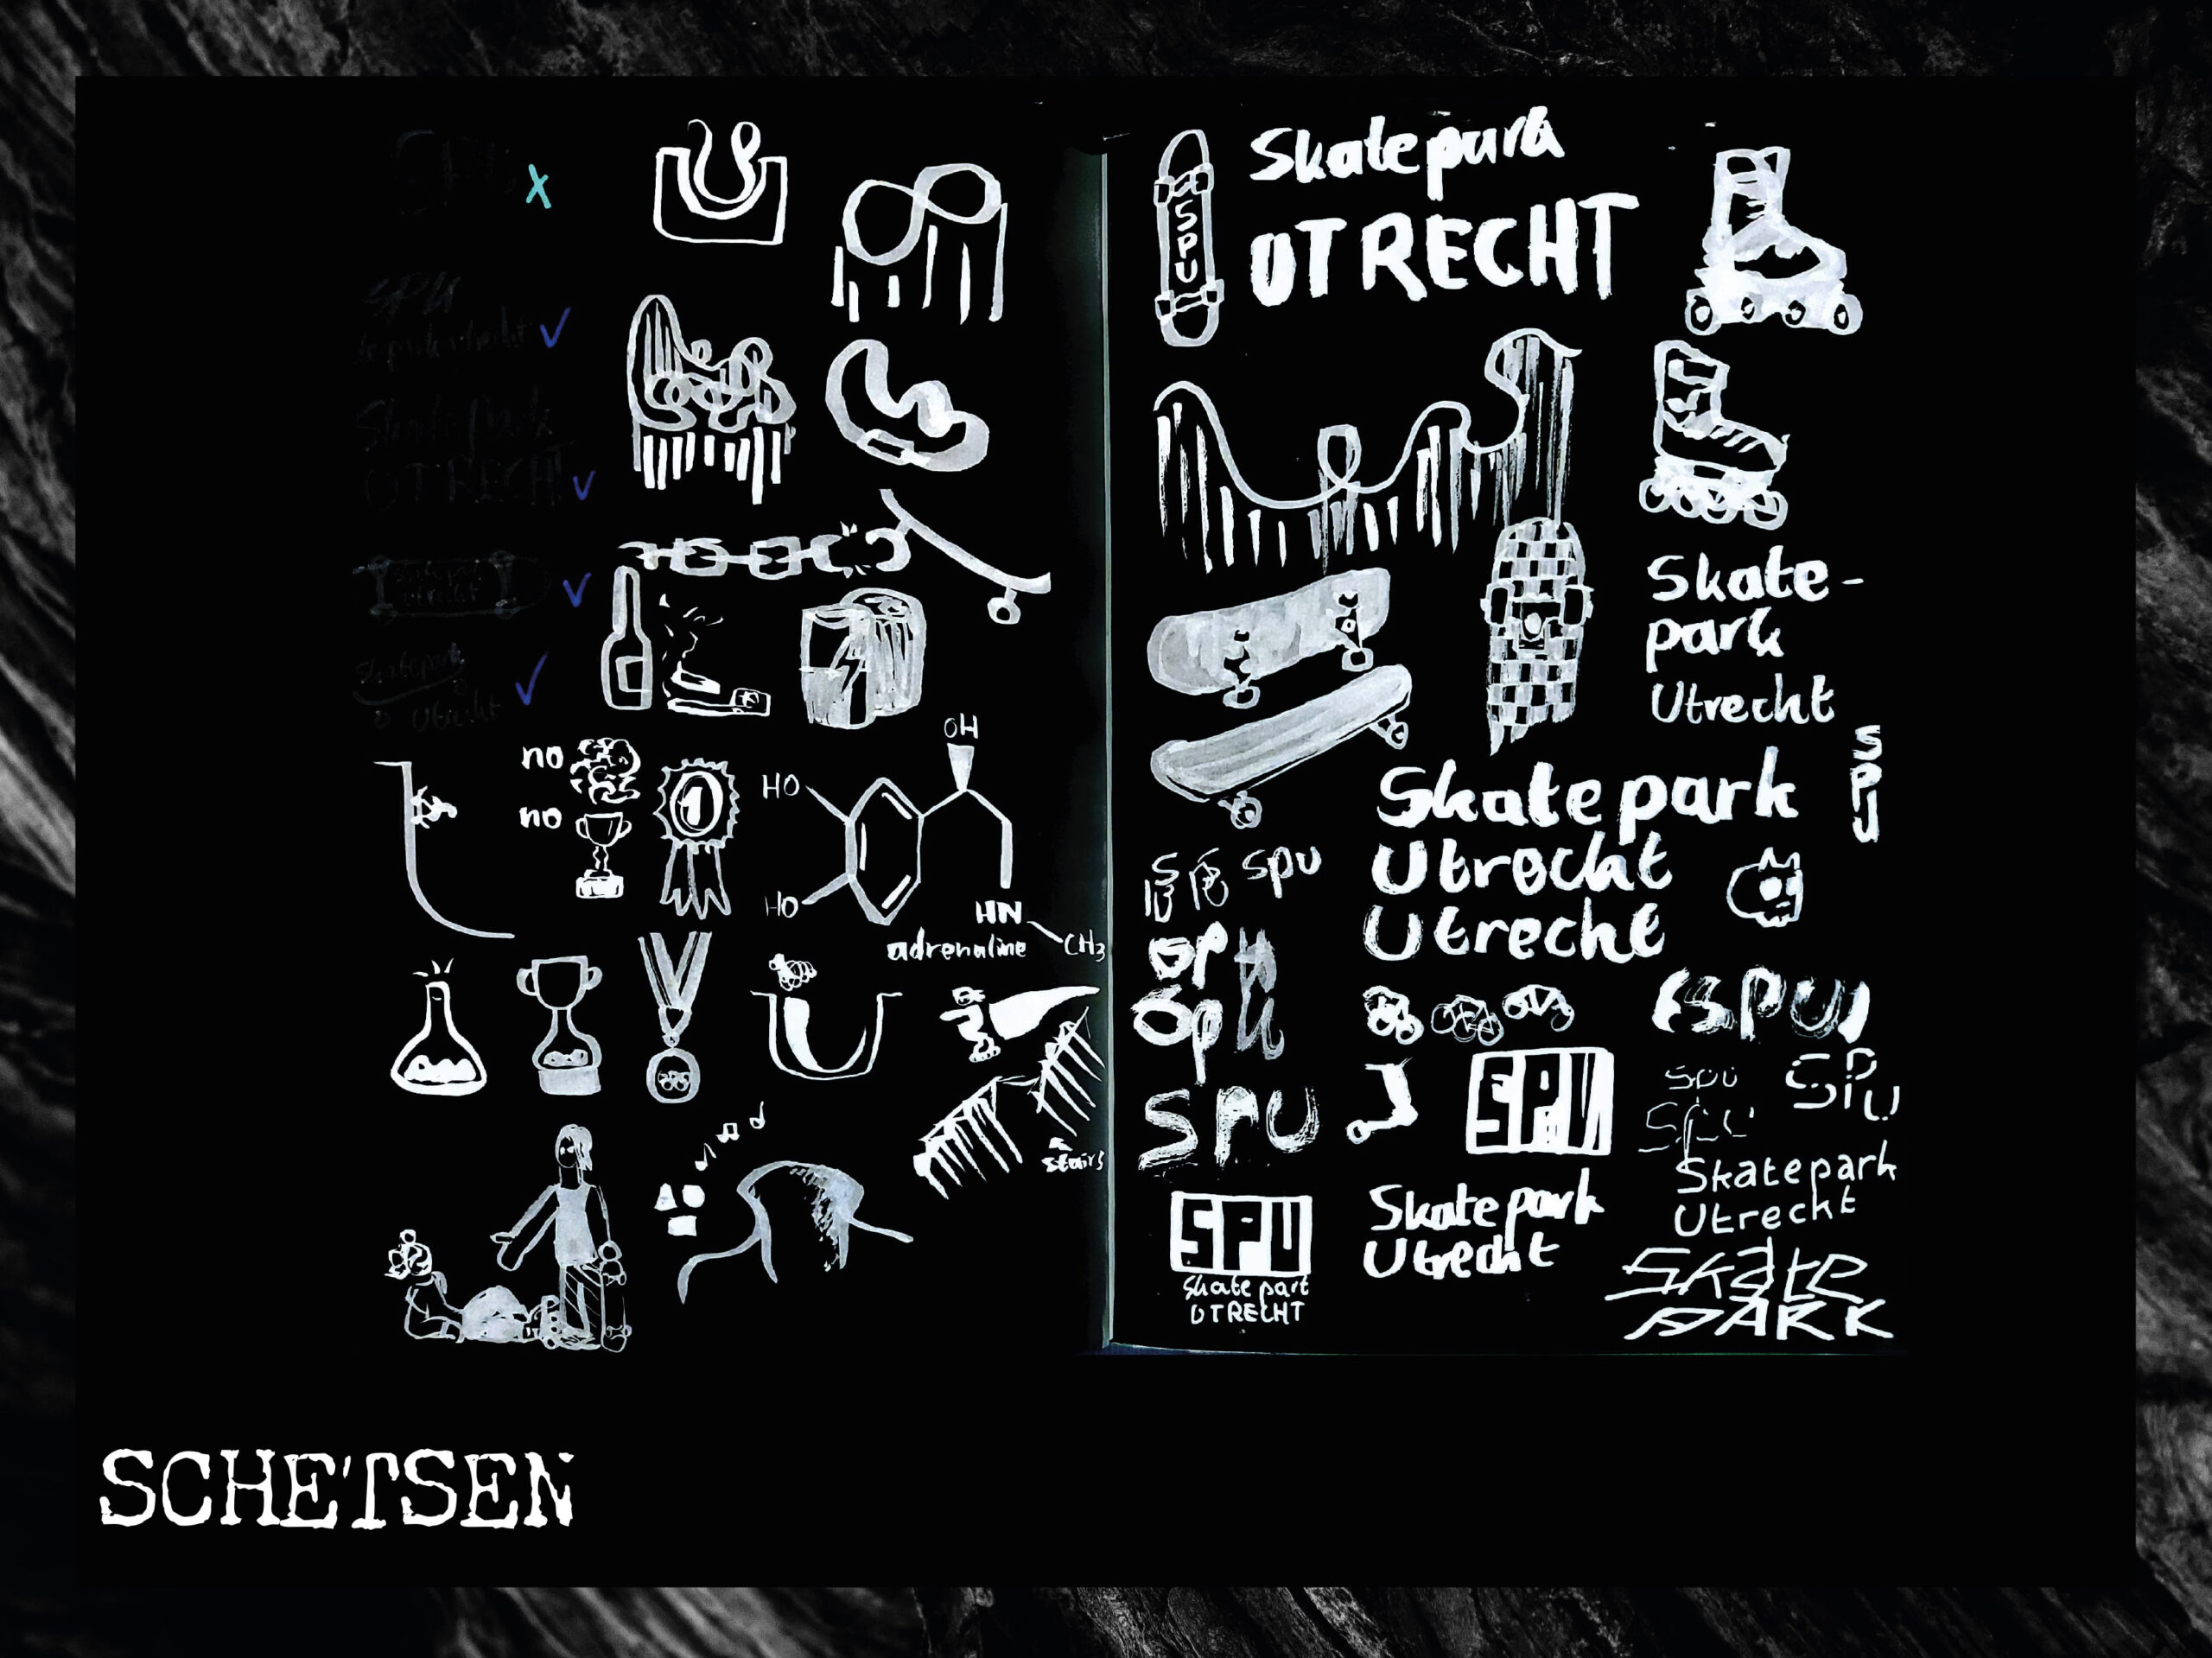 x
SPU
Skatepark
UTRECHT
SPU
skatepark utrecht
Skatepark
UTRECHT
skatepark
utrecht
Skatepark
Utrecht
no
no
1
OH
HO
HO
HN
CH3
adrenaline
stairs
SPU
Skatepark
UTRECHT
Skate-
park
Utrecht
SPU
Skatepark
Utrocht
Utrecht
SPU
spu
spu
SPU
SPU
SPU
(SPU)
spu
SPU
SPU
Skatepark
Utrecht
SPU
Skate park
UTRECHT
Skatepark
Utrecht
SKATE
PARK
SCHETSEN